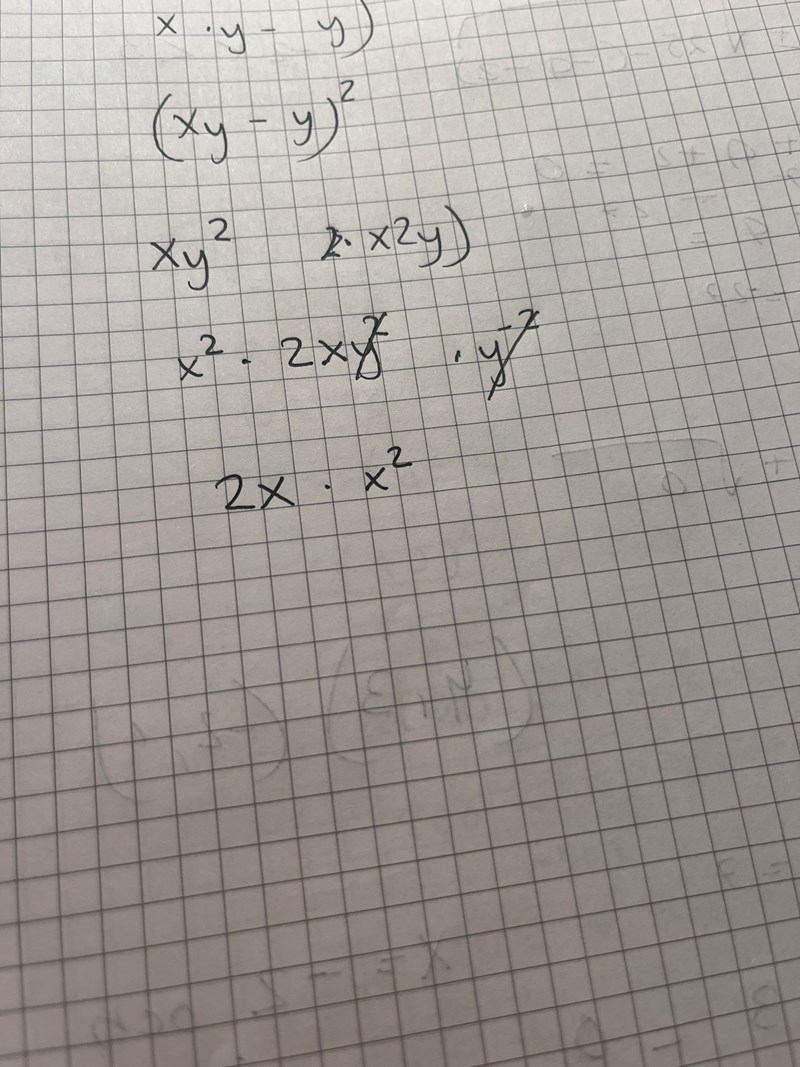 x · y - y)
(xy - y)²
xy² 2 · x2y)
x² · 2xy² · y⁻²
2x · x²